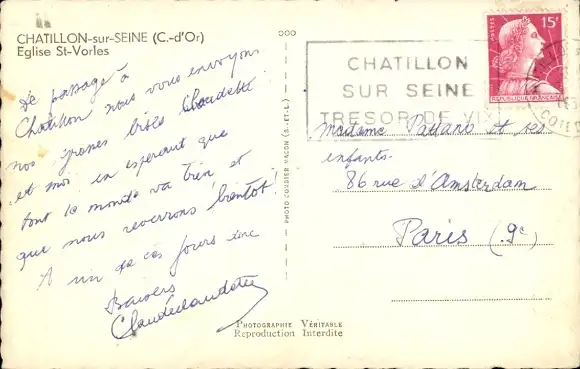 CHATILLON-sur-SEINE (C.-d'Or)
Eglise St-Vorles
De passage à
Chatillon nous vous envoyons
nos grosses bises Claudette
et moi en esperant que
tout le monde va bien et
que nous reverrons bientot!
A un de ces jours donc
Baisers
PHOTO COMBIER MACON (S.-ET-L.)
CHATILLON
SUR SEINE
TRESOR DE VIX
POSTES
15F
REPUBLIQUE FRANÇAISE
COTE D
Madame et ses
enfants.
86 rue d'Amsterdam
Paris (9e
PHOTOGRAPHIE VÉRITABLE
Reproduction Interdite